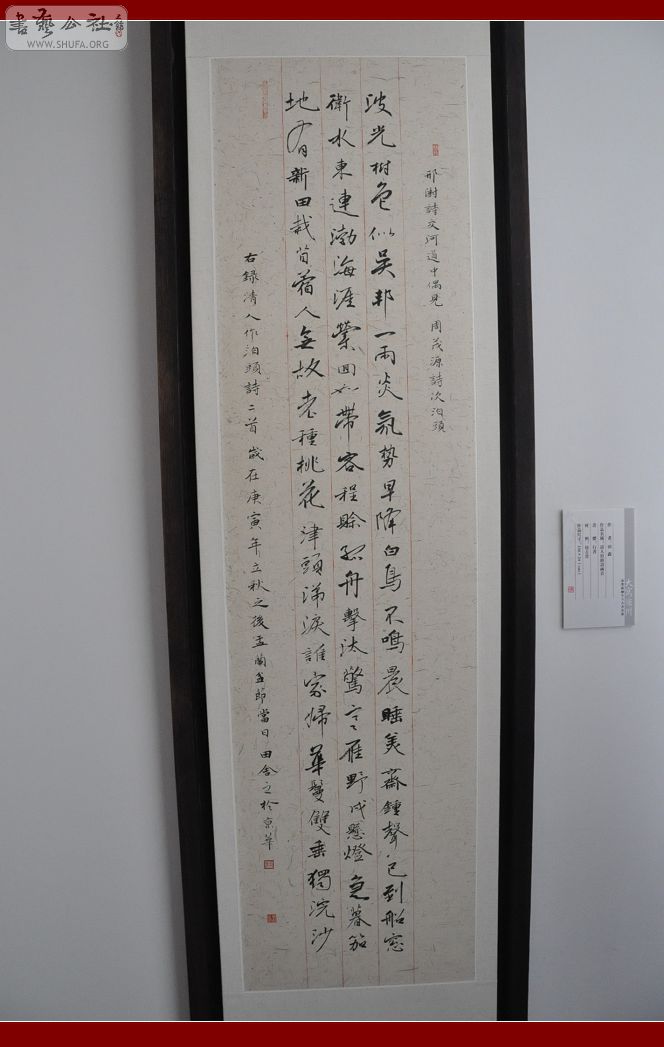 書藝公社
WWW.SHUFA.ORG
邢澍詩交河道中偶見 周茂源詩次泊頭
波光樹色似吴邦一雨炎氛势早降白鳥不鳴晨睡美齋鐘聲已到船窓
衛水東連渤海涯縈回如帶客程賒孤舟擊汰驚言雁野戍懸燈急暮笳
地有新田栽苜蓿人無故老種桃花津頭涕淚誰家婦華鬘雙垂獨浣沙
右録清人作泊頭詩二首 歲在庚寅年立秋之後盂蘭盆節當日田舍之於京華